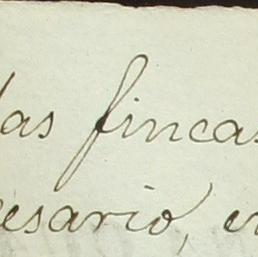 las fincas
esario, en